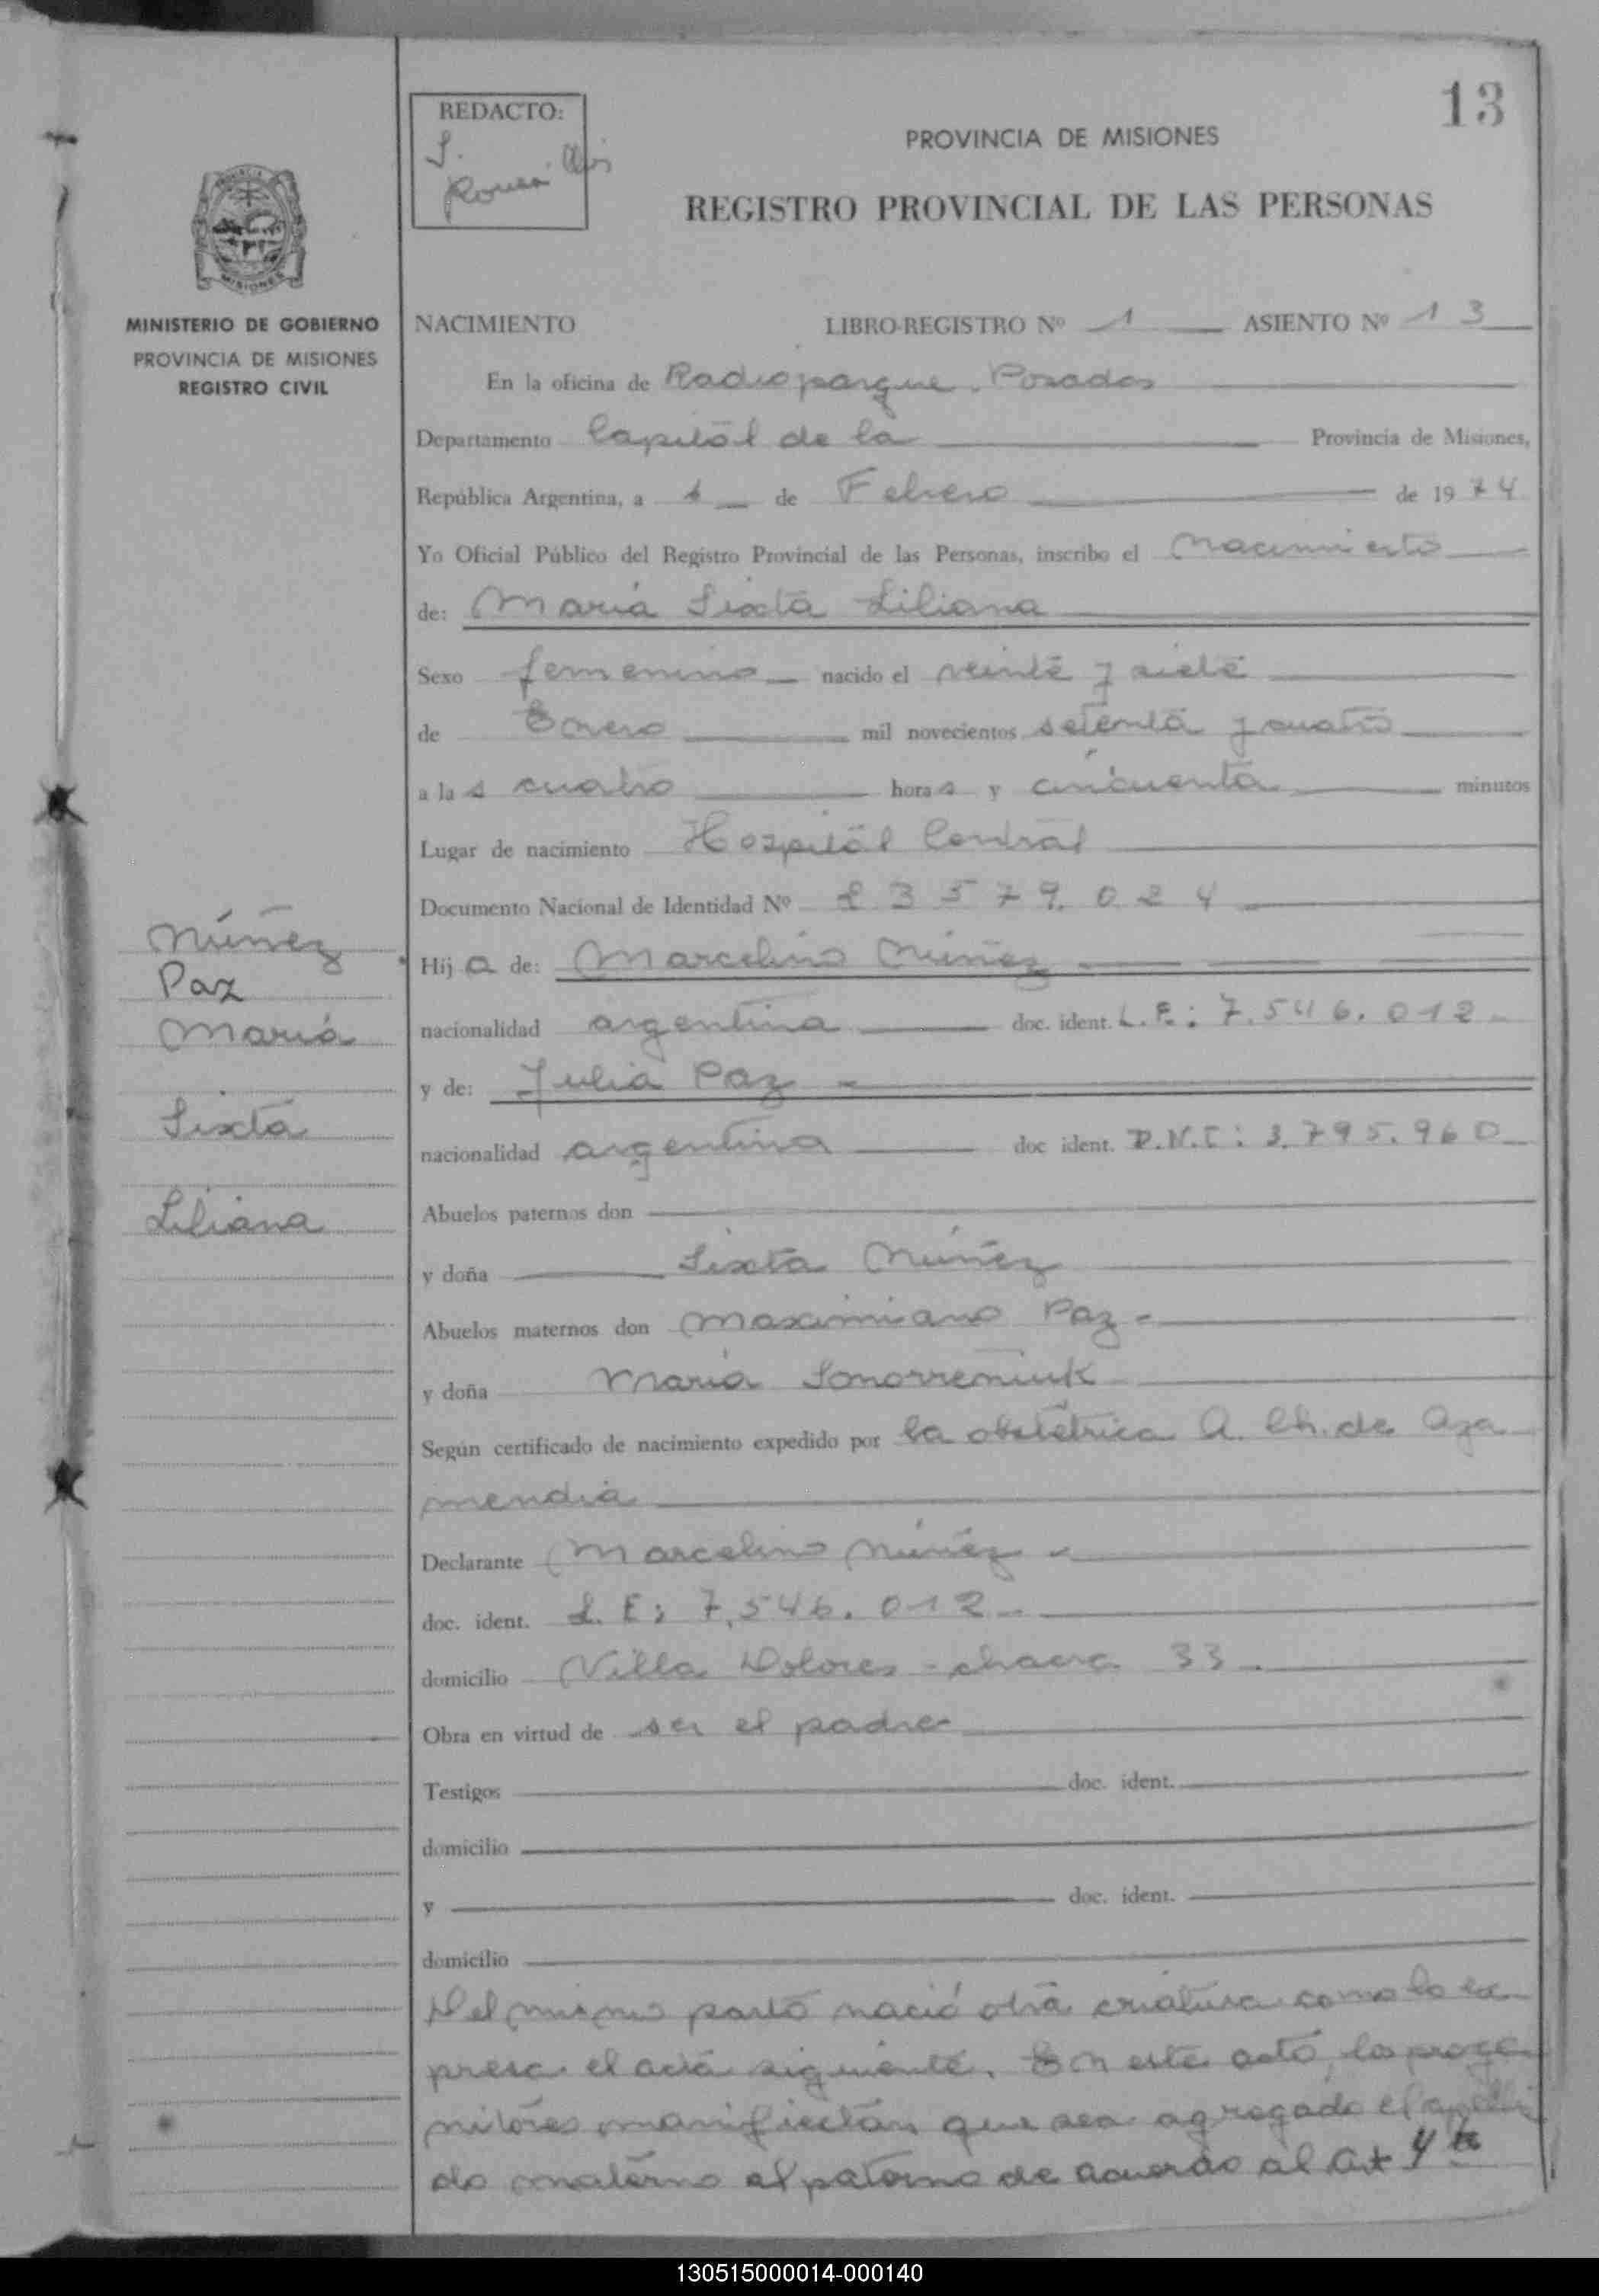 13
REDACTO:
PROVINCIA DE MISIONES
REGISTRO PROVINCIAL DE LAS PERSONAS
MINISTERIO DE GOBIERNO
PROVINCIA DE MISIONES
REGISTRO CIVIL
NACIMIENTO LIBRO-REGISTRO Nº 1 ASIENTO Nº 13
En la oficina de Radioparque. Posadas
Departamento Capital de la Provincia de Misiones,
República Argentina, a de Febrero de 1974
Yo Oficial Público del Registro Provincial de las Personas, inscribo el Nacimiento
de: María Sixta Liliana
Sexo femenino nacido el veinte y siete
de Enero mil novecientos setenta y cuatro
a las cuatro horas y cincuenta minutos
Lugar de nacimiento Hospital Central
Documento Nacional de Identidad Nº 23579.024
Núñez
Paz
María
Sixta
Liliana
Hija de: Marcelino Núñez
nacionalidad argentina doc. ident. L.E.: 7.546.012-
y de: Julia Paz -
nacionalidad argentina doc ident. D.N.I: 3.795.960
Abuelos paternos don
y doña Sixta Núñez
Abuelos maternos don Maximiano Paz-
y doña María
Según certificado de nacimiento expedido por la obstétrica A. Ch. de Aza
mendia
Declarante Marcelino Núñez -
doc. ident. L.E: 7.546.012-
domicilio Villa Dolores - chacra 33.
Obra en virtud de ser el padre
Testigos doc. ident.
domicilio
y doc. ident.
domicilio
Del mismo parto nació otra criatura como lo ex
presa el acta siguiente. En este acto, los proge
nitores manifiestan que sea agregado el apelli
do materno al paterno de acuerdo al Art 4
130515000014-000140